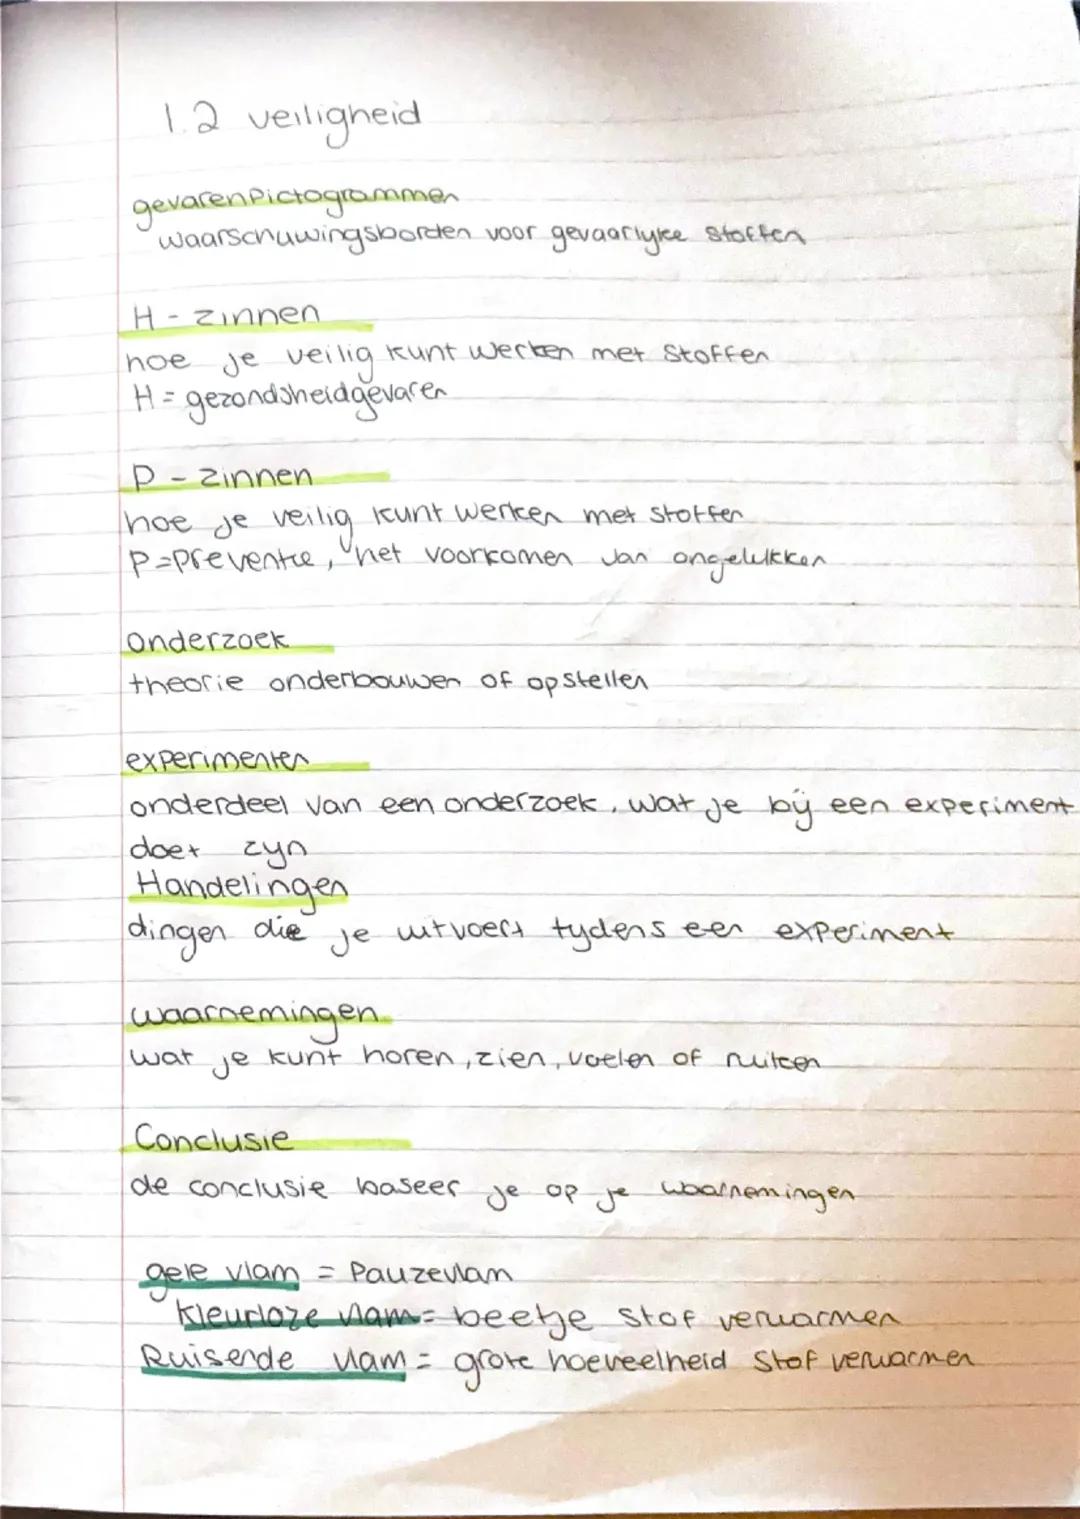 1.2 veiligheid
gevarenpictogrammen
waarschuwingsborden voor gevaarlyke stoffen
H - zinnen
hoe je veilig kunt werken met stoffen
H = gezondsheidgevaren
P - zinnen
hoe je veilig kunt werken met stoffen
P = preventie, het voorkomen van ongelukken
onderzoek
theorie onderbouwen of opstellen
experimenten
onderdeel van een onderzoek, wat je bij een experiment
doet zyn
Handelingen
dingen die je uitvoert tydens een experiment
waarnemingen
wat je kunt horen, zien, voelen of ruiken
Conclusie
de conclusie baseer je op je waarnemingen
gele vlam = Pauzevlam
kleurloze vlam = beetje stof verwarmen
Ruisende vlam = grote hoeveelheid stof verwarmen